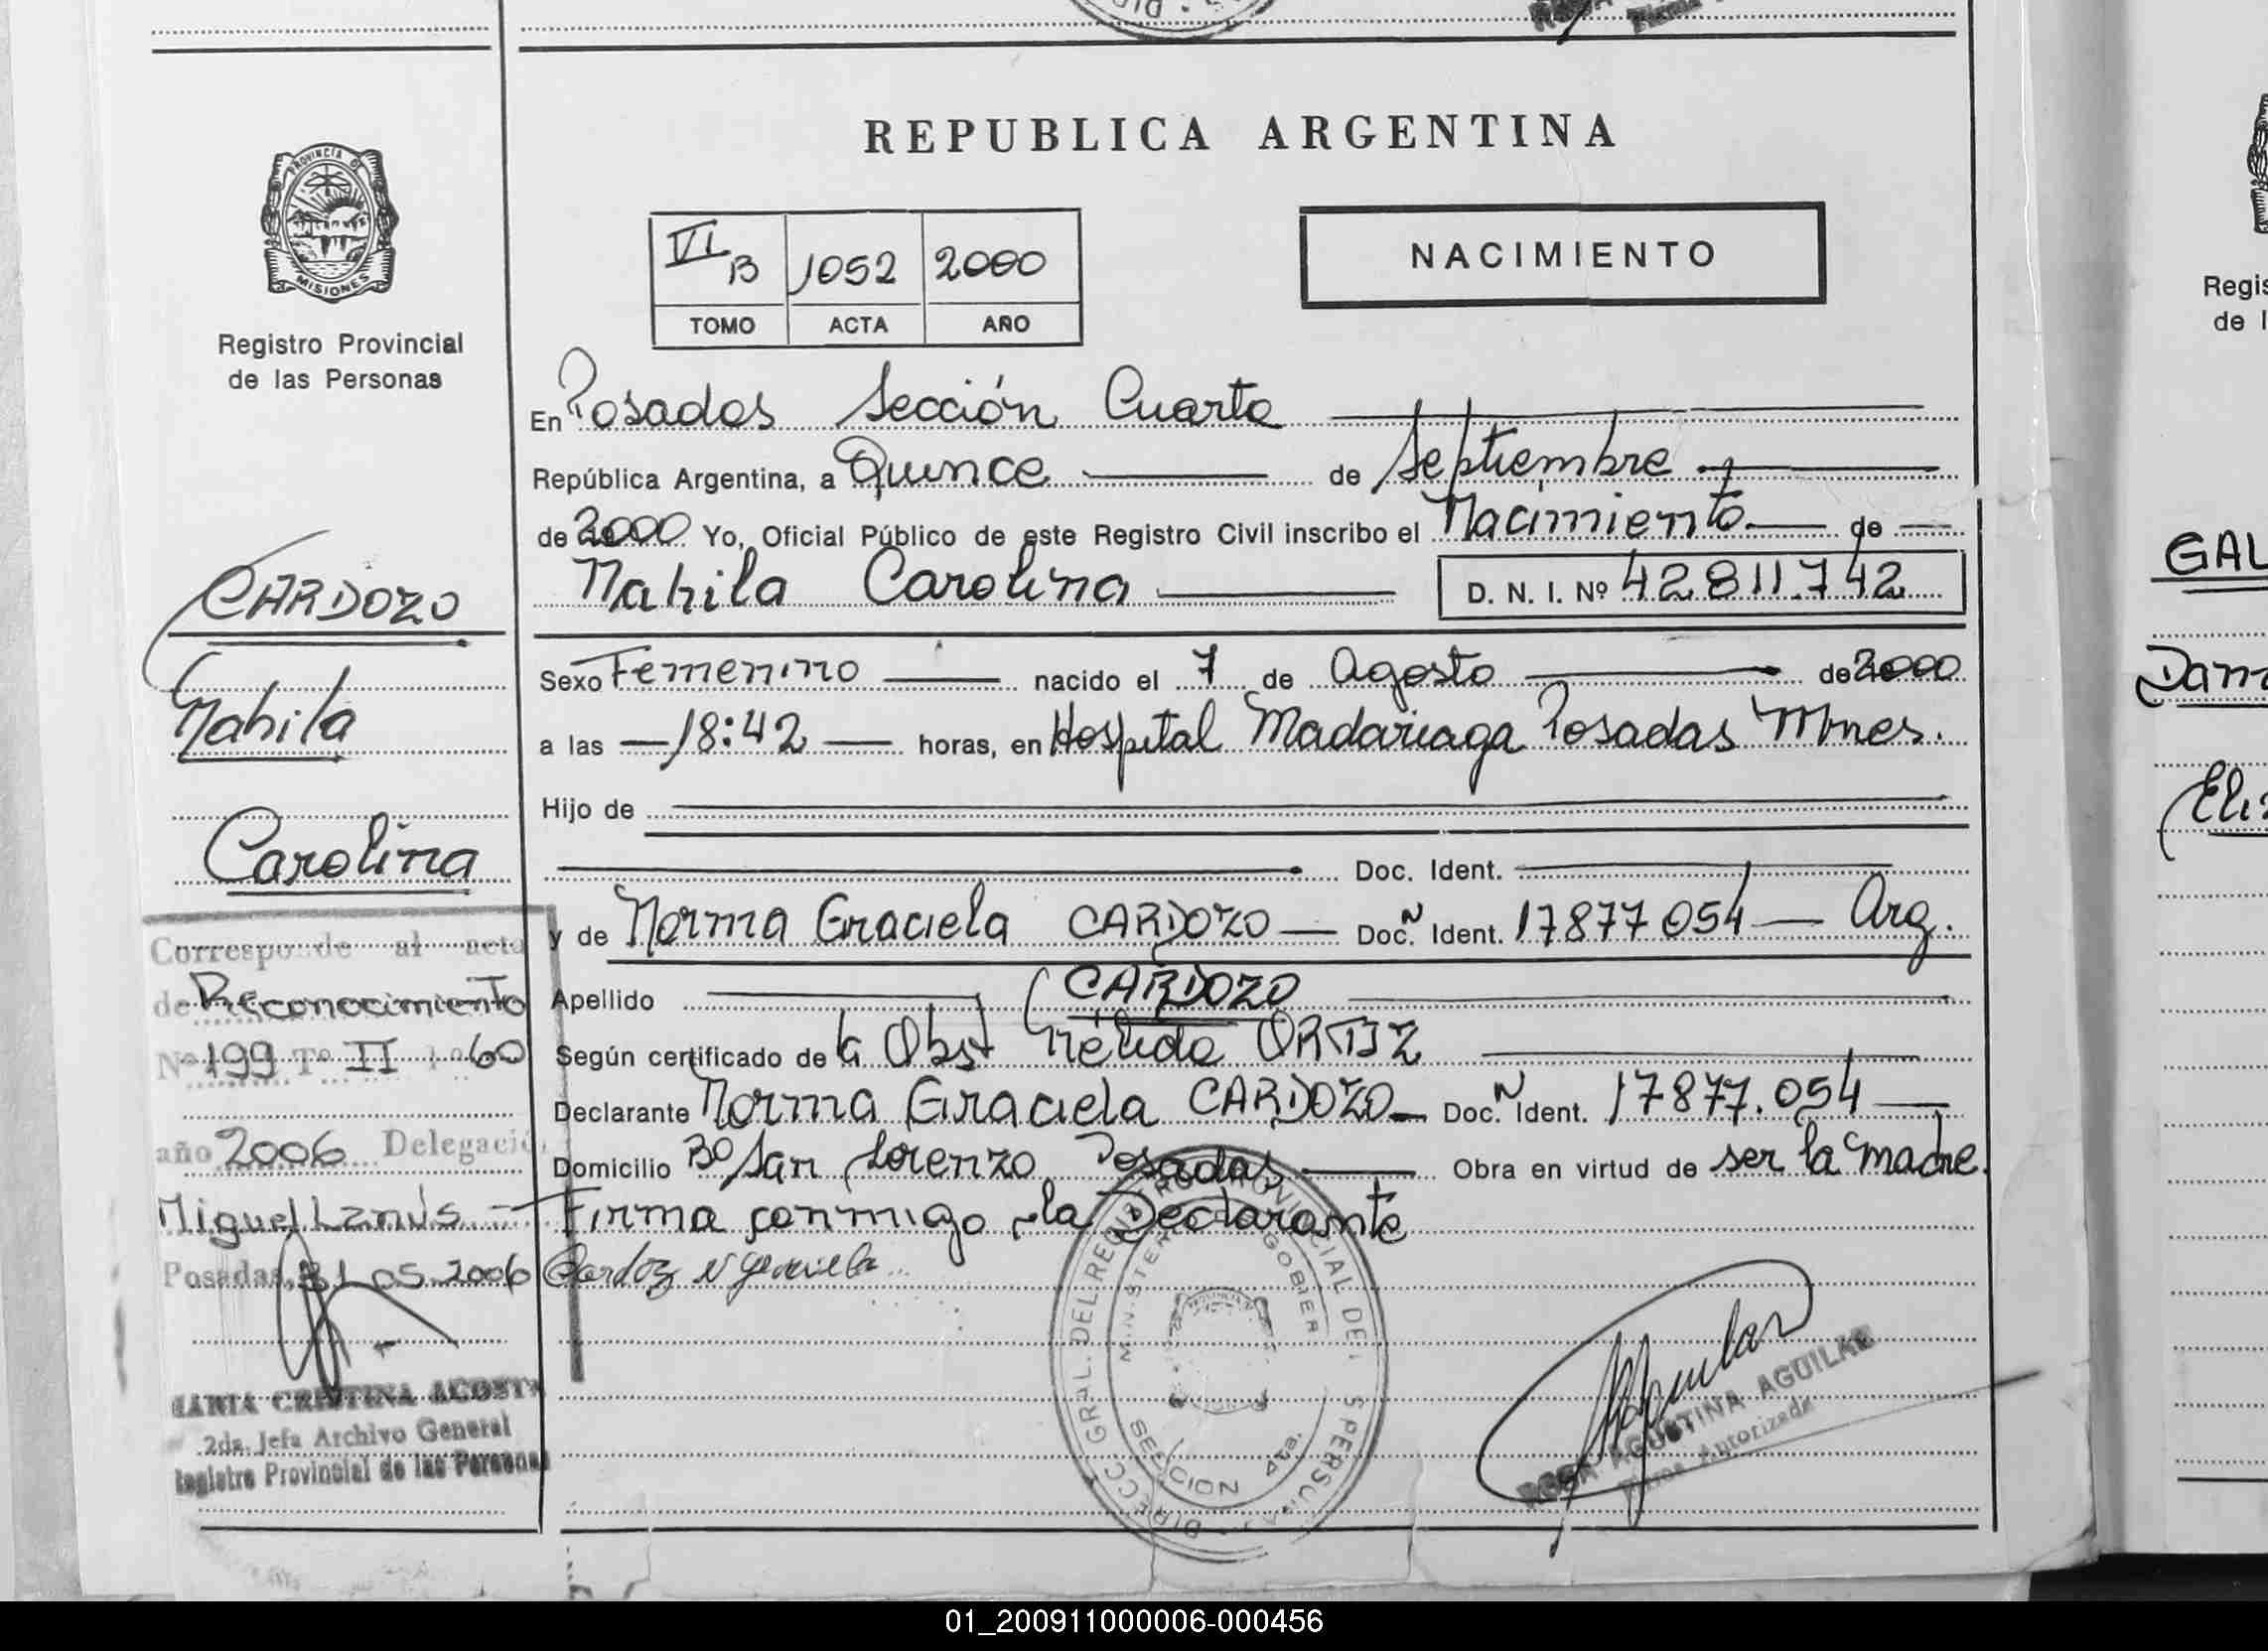 REPUBLICA ARGENTINA
PROVINCIA DE
MISIONES
Registro Provincial
de las Personas
VI B 1052 2000
TOMO ACTA AÑO
NACIMIENTO
En Posadas Sección Cuarta
República Argentina, a Quince de Septiembre
de 2000 Yo, Oficial Público de este Registro Civil inscribo el Nacimiento de
Nahila Carolina D. N. I. Nº 42.811.742
Sexo Femenino nacido el 7 de Agosto de 2000
a las 18:42 horas, en Hospital Madariaga Posadas Mnes.
Hijo de
Doc. Ident.
y de Norma Graciela CARDOZO Doc. N Ident. 17877054 Arg.
Apellido CARDOZO
Según certificado de la Obst Nélida ORTIZ
Declarante Norma Graciela CARDOZO Doc. N Ident. 17877.054
Domicilio Bo San Lorenzo Posadas Obra en virtud de ser la madre.
Firma conmigo la Declarante
CARDOZO
Nahila
Carolina
Corresponde al acta
de Reconocimiento
Nº 199 Tº II Fº 60
año 2006 Delegació
Miguel Lanús
Posadas, 31 05 2006
MARIA CRISTINA ACOSTA
2da. Jefa Archivo General
Registro Provincial de las Personas
DIRECC. GRAL. DEL REGISTRO PROVINCIAL DE
SECCION 4ta.
ROSA AGUSTINA AGUILAR
Firma Autorizada
Regis
de l
GAL
Dan
Eli
01_200911000006-000456